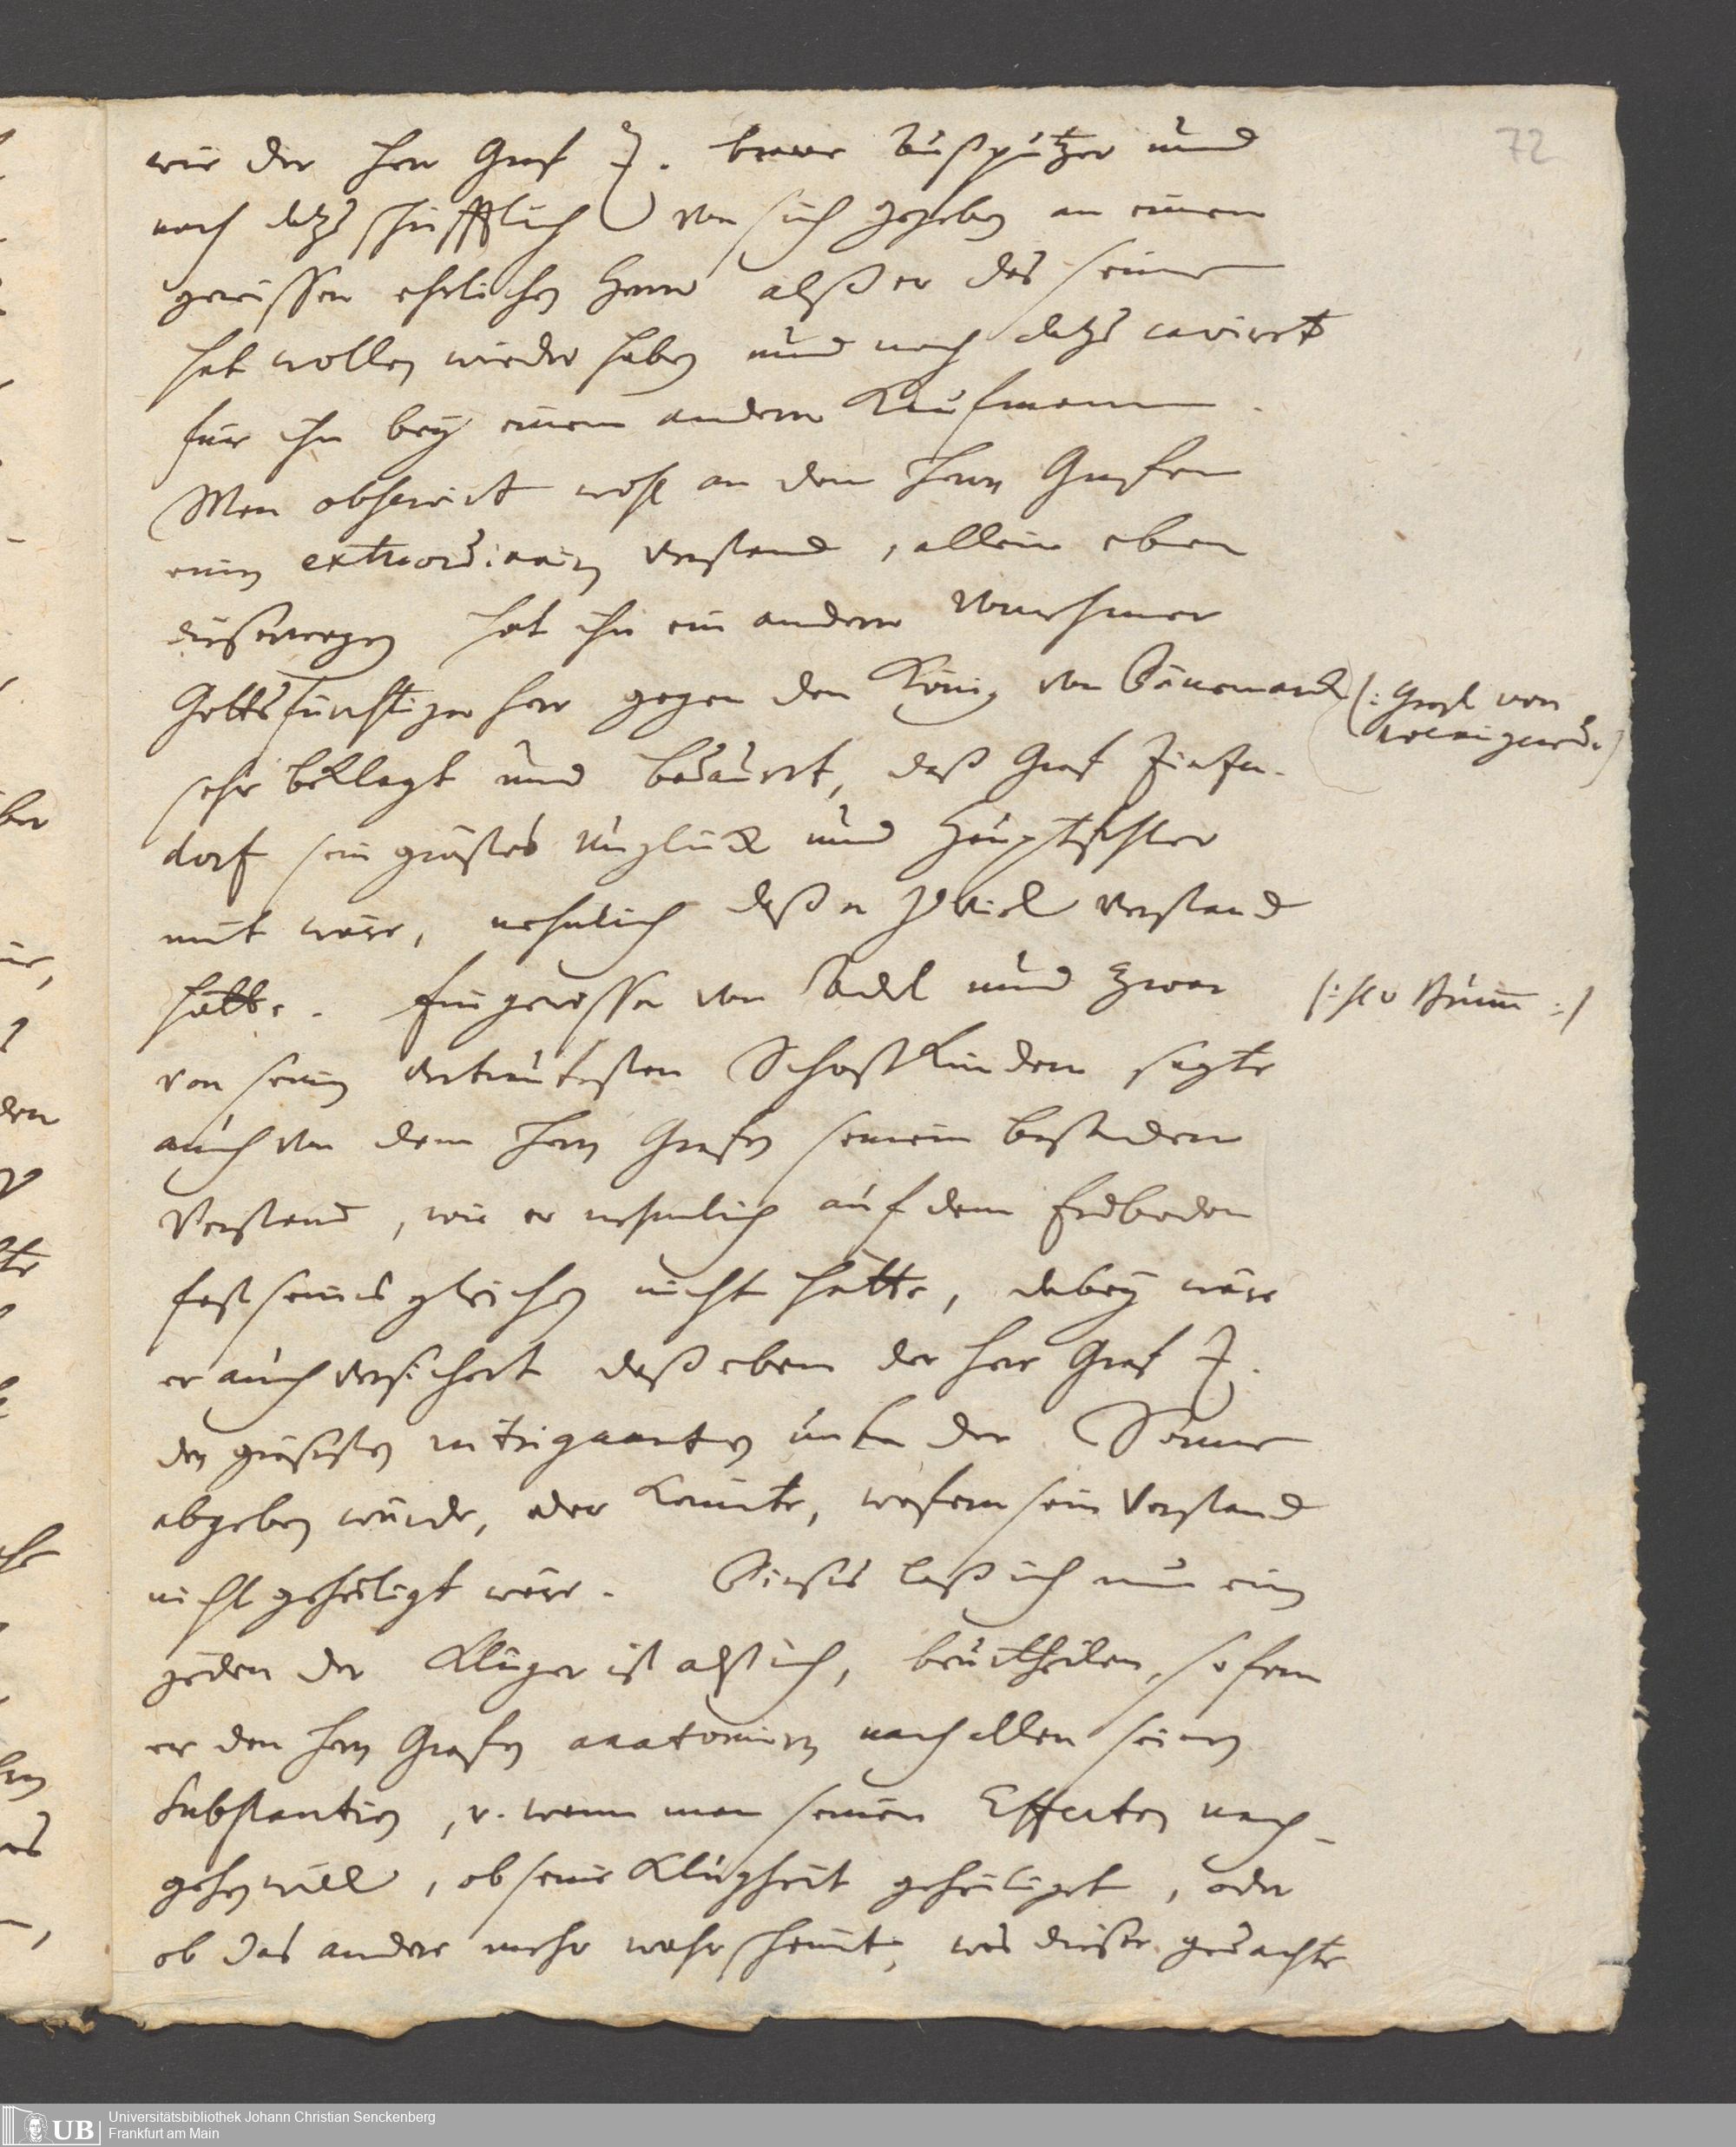 72
wie der Herr Graf Z. brave Außputzer und
noch dazu schrifftlich von sich gegeben an einem
gewissen ehrlichen Herrn alß er das seine
hat wollen wieder haben und noch dazu caviret
für ihn bey einem andern Kaufmann.
Man observirt wohl an dem Herrn Grafen
einen extraordinairen Verstand, allein eben
dießerwegen hat ihn ein anderer Vornehmer
Gottsfürchtiger Herr gegen den König von Dänemark
(: Graf von
Wernigerod. :)
sehr beklagt und bedauret, daß Graf Zinzen-
dorf sein größtes Unglück und Hauptfehler
mit wäre, nehmlich daß er zu viel Verstand
hätte. Ein gewisser von Adel und zwar
von seinen vertrautesten Schoßkindern sagte
auch von dem Herrn Grafen seinem besondern
Verstand, wie er nehmlich auf dem Erdboden
fast seines gleichen nicht hätte, dabey wäre
er auch versichert daß eben der Herr Graf Z.
den grösesten intriganten unter der Sonne
abgeben würde, oder könnte, wofern sein Verstand
nicht geheiligt wäre. Dießes laß ich nun einen
jeden der klüger ist alß ich, beurtheilen, sofern
er den Herrn Grafen anatomiren nach allen seinen
Substantien, u. wenn man seinen Effecten nach-
gehen will, ob seine Klugheit geheiliget, oder
ob das andere mehr wahr scheint, was dießer gedachte
Universitätsbibliothek Johann Christian Senckenberg
Frankfurt am Main
UB